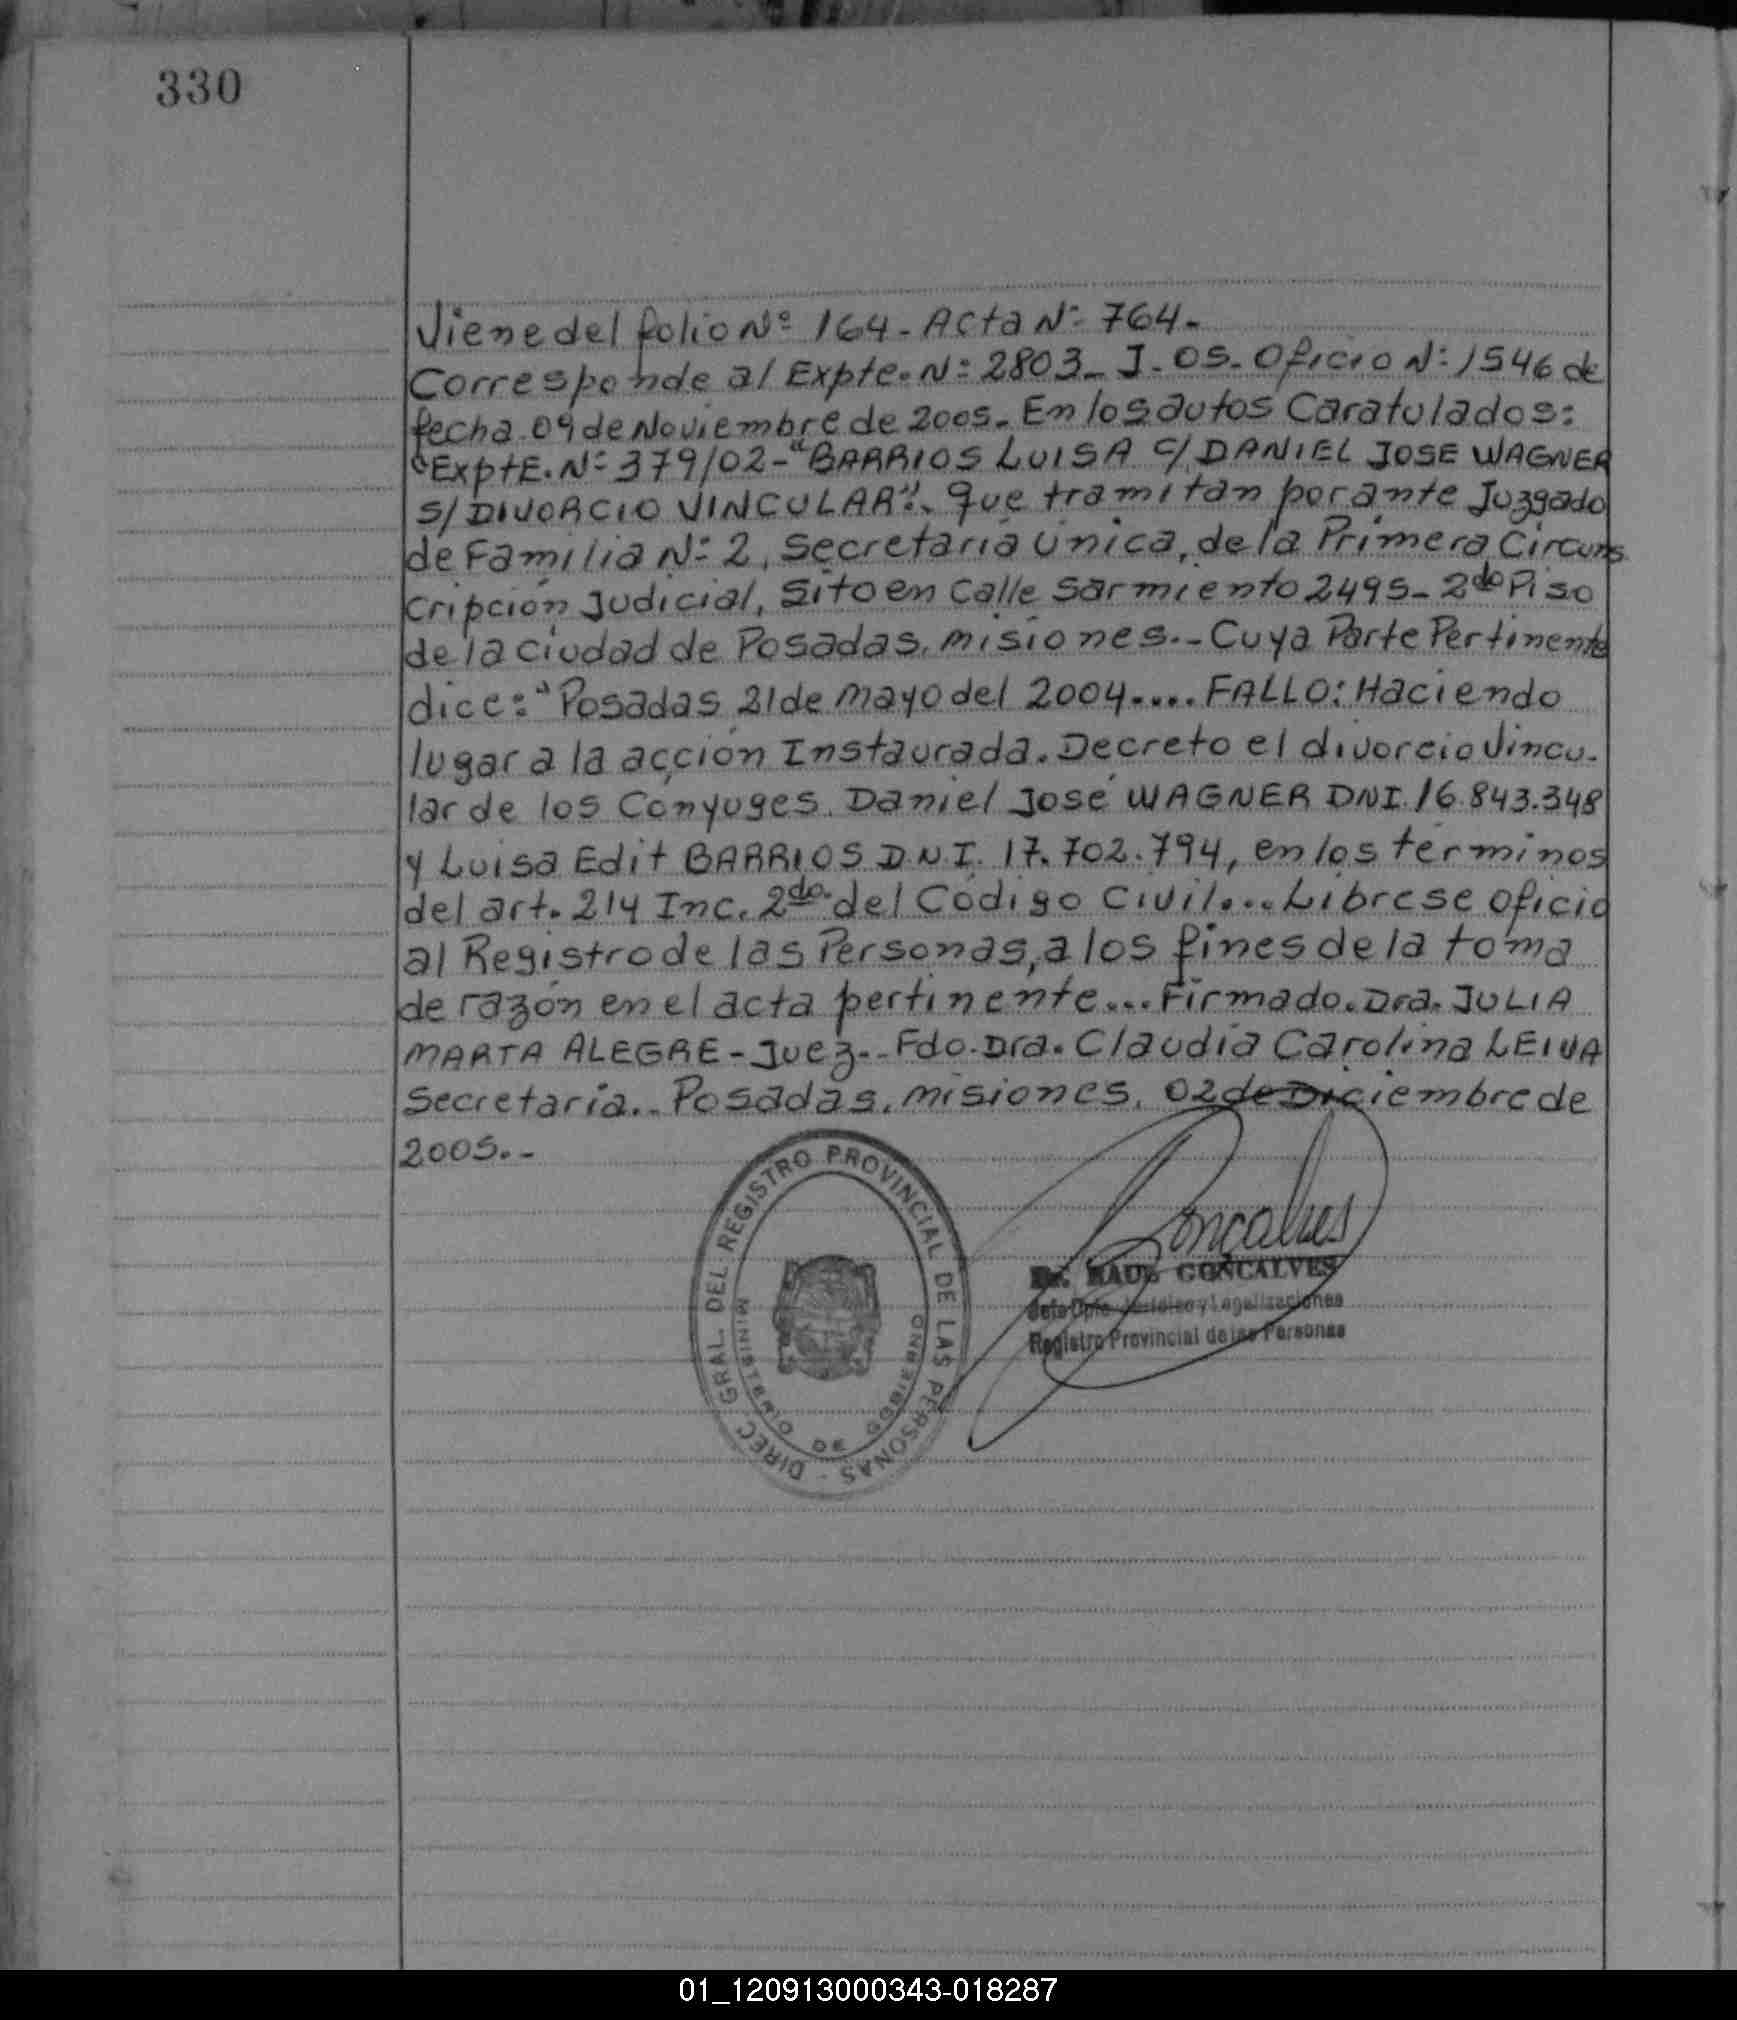 330
Viene del folio Nº 164 - Acta Nº 764 -
Corresponde al Expte. Nº 2803 - J - 05 - Oficio Nº 1546 de
fecha 09 de Noviembre de 2005. En los autos Caratulados:
"ExptE. Nº 379/02 - "BARRIOS LUISA C/ DANIEL JOSE WAGNER
S/ DIVORCIO VINCULAR". que tramitan por ante Juzgado
de Familia Nº 2, Secretaría Única, de la Primera Circuns
cripción Judicial, Sito en Calle Sarmiento 2495 - 2do Piso
de la ciudad de Posadas, misiones. - Cuya Parte Pertinente
dice: "Posadas 21 de Mayo del 2004.... FALLO: Haciendo
lugar a la acción Instaurada. Decreto el divorcio Vincu-
lar de los Conyuges. Daniel José WAGNER DNI. 16.843.348
y Luisa Edit BARRIOS D.N.I. 17.702.794, en los términos
del art. 214 Inc. 2do. del Código Civil.... Líbrese oficio
al Registro de las Personas, a los fines de la toma
de razón en el acta pertinente... Firmado. Dra. JULIA
MARTA ALEGRE - Juez - Fdo. Dra. Claudia Carolina LEIVA
Secretaria.. Posadas, misiones, 02 de Diciembre de
2005. -
DIREC. GRAL. DEL REGISTRO PROVINCIAL DE LAS PERSONAS -
MINISTERIO DE GOBIERNO
Goncalves
Dr. RAUL GONCALVES
Jefe Dpto. Jurídico y Legalizaciones
Registro Provincial de las Personas
01_120913000343-018287